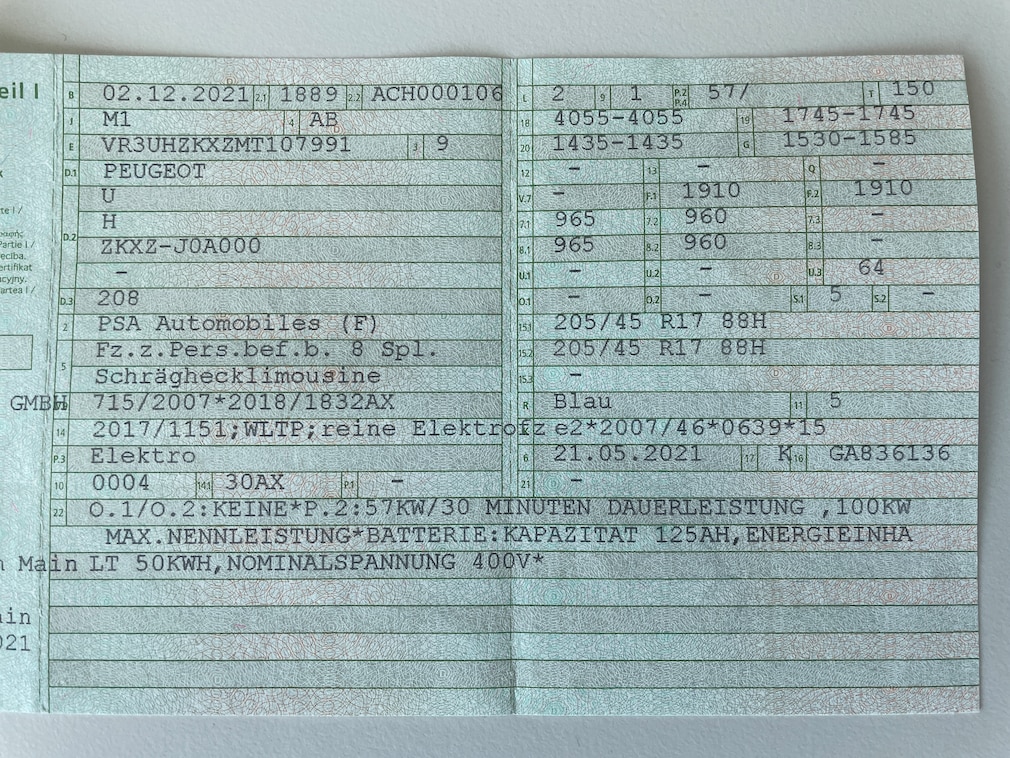 eil I
B 02.12.2021 2.1 1889 2.2 ACH000106
J M1 4 AB
E VR3UHZKXZMT107991 3 9
D.1 PEUGEOT
U
D.2 H
ZKXZ-J0A000
-
D.3 208
2 PSA Automobiles (F)
5 Fz.z.Pers.bef.b. 8 Spl.
Schräghecklimousine
GMBH 715/2007*2018/1832AX
14 2017/1151;WLTP;reine Elektrofz
P.3 Elektro
10 0004 14.1 30AX P.1 -
L 2 9 1 P.2 P.4 57/ T 150
18 4055-4055 19 1745-1745
20 1435-1435 G 1530-1585
12 - 13 - Q -
V.7 - F.1 1910 F.2 1910
7.1 965 7.2 960 7.3 -
8.1 965 8.2 960 8.3 -
U.1 - U.2 - U.3 64
O.1 - O.2 - S.1 5 S.2 -
15.1 205/45 R17 88H
15.2 205/45 R17 88H
15.3 -
R Blau 11 5
e2*2007/46*0639*15
6 21.05.2021 17 K 16 GA836136
21 -
22 O.1/O.2:KEINE*P.2:57KW/30 MINUTEN DAUERLEISTUNG ,100KW
MAX.NENNLEISTUNG*BATTERIE:KAPAZITAT 125AH,ENERGIEINHA
Main LT 50KWH,NOMINALSPANNUNG 400V*
ain
021
te I /
Partie I /
eciba.
ertifikat
acyjny.
artea I /